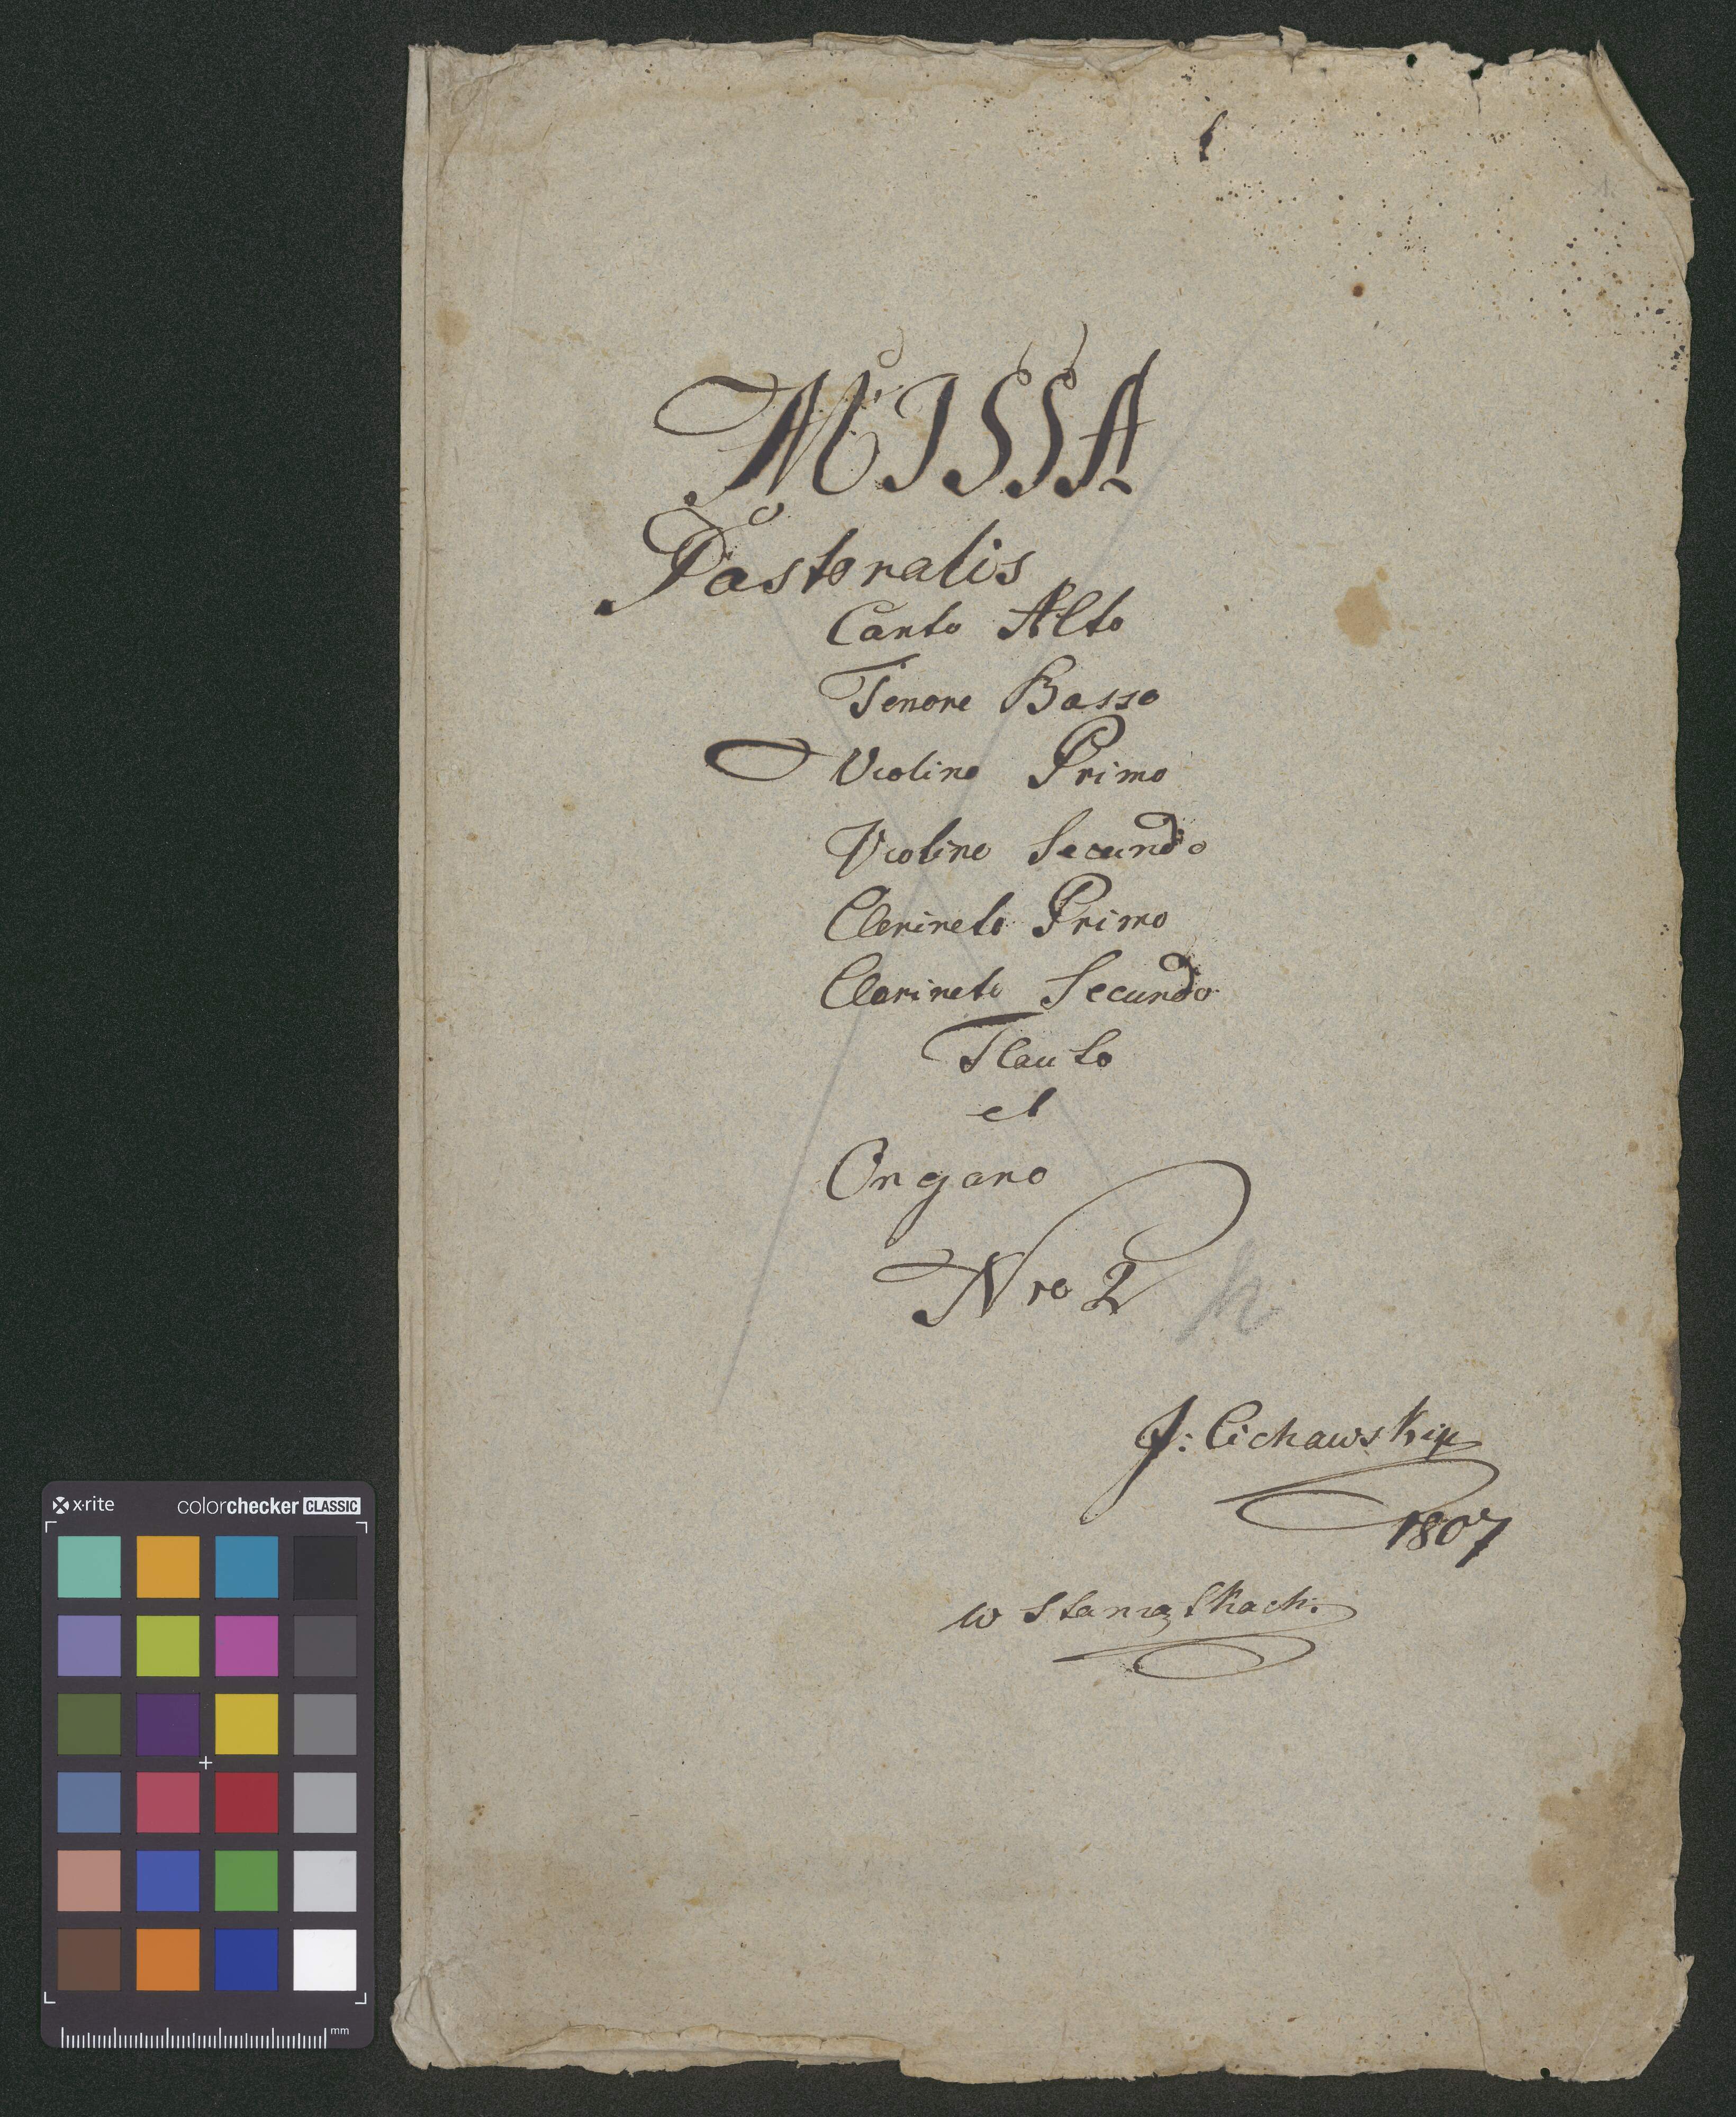 MISSA
Pastoralis
Canto Alto
Tenore Basso
Violino Primo
Violino Secundo
Clarineto Primo
Clarineto Secundo
Flauto
et
Organo
Nro 2
J: Cichawski
1807
w
x·rite colorchecker CLASSIC
mm